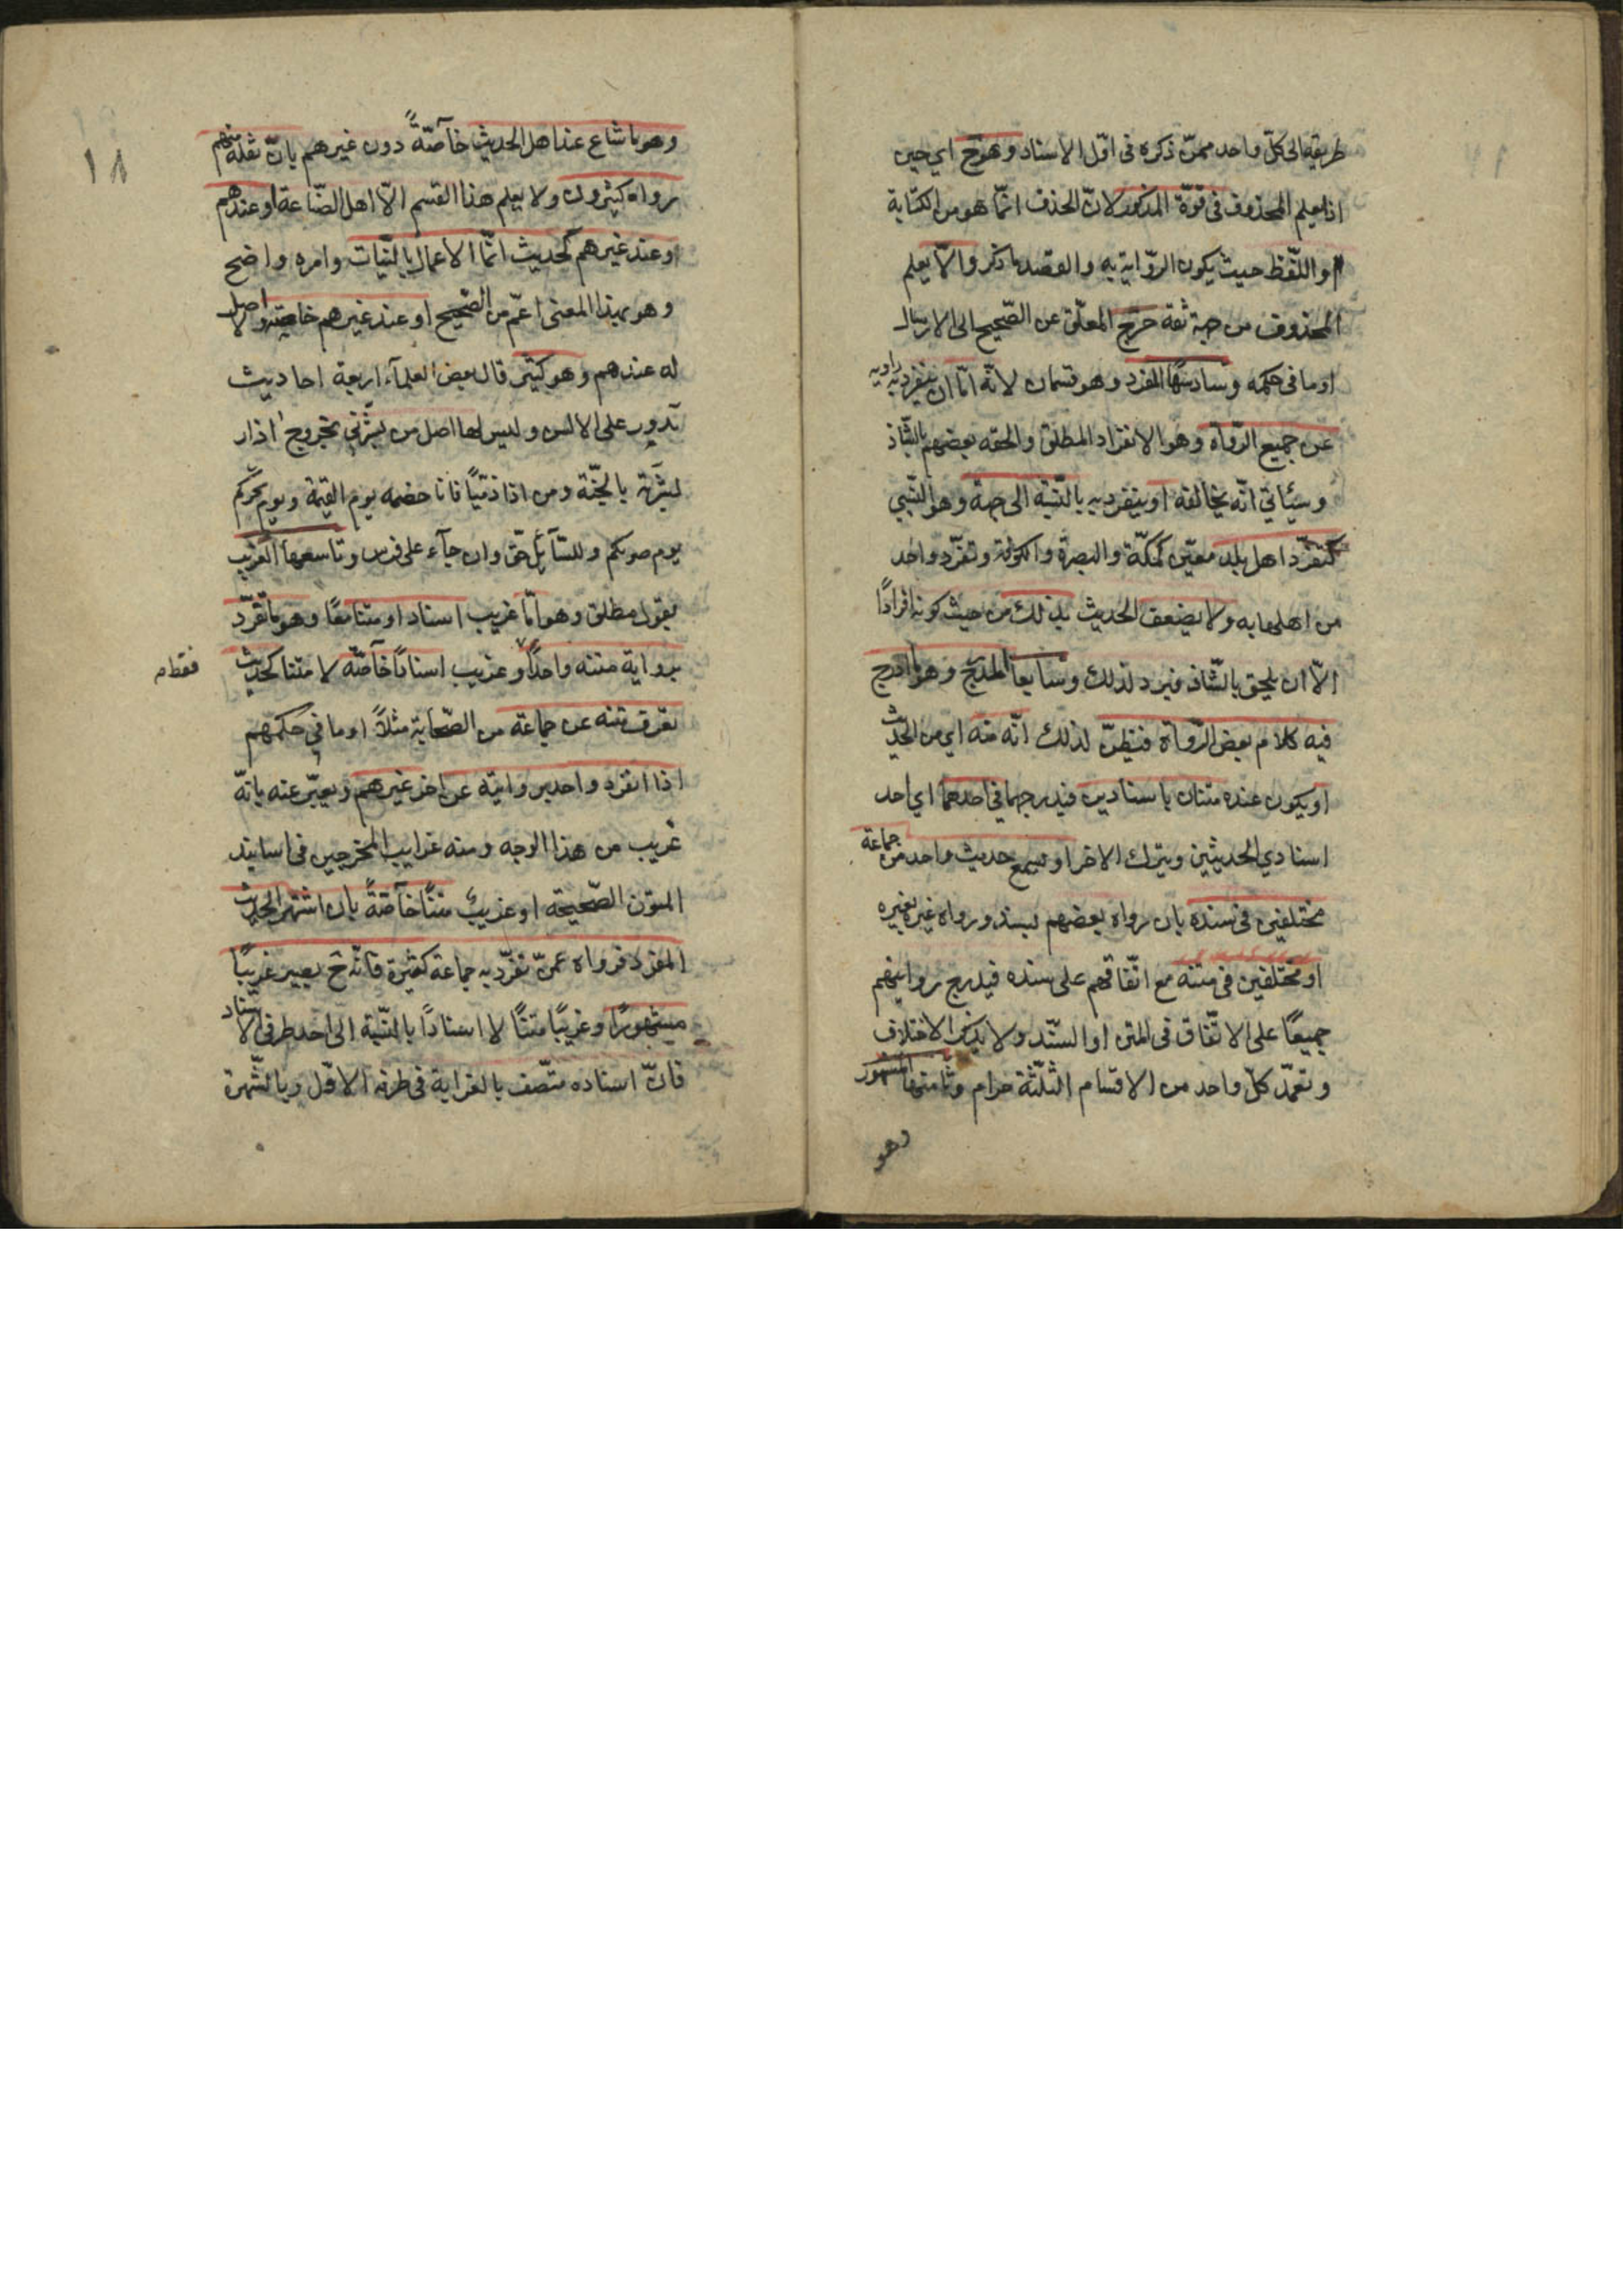 طريقه الى كلّ واحد ممّن ذكره فى اوّل الاسناد وهو ح اي حين
اذا يعلم المحذوف فى قوّة المذكور لانّ الحذف انّما هو من الكتابة
او اللّفظ حيث يكون الرّواية به والقصد ما ذكر والّا يعلم
المحذوف من جهة ثقة خرج المعلّق عن الصّحيح الى الارسال
او ما فى حكمه وسادسها المفرد وهو قسمان لانّه امّا ان ينفرد به راويه
عن جميع الرّواة وهو الانفراد المطلق والحقه بعضهم بالشّاذ
وسيأتي انّه يخالفه او ينفرد به بالنّسبة الى جهة وهو النّسبي
كتفرّد اهل بلد معيّن كمكّة والبصرة والكوفة وتفرّد واحد
من اهلها به ولا يضعف الحديث بذلك من حيث كونه افرادًا
الّا ان يلحق بالشّاذ فيرد لذلك وسابعها المدرج وهو ما ادرج
فيه كلام بعض الرّواة فيظنّ لذلك انّه منه اي من الحديث
او يكون عنده متنان باسنادين فيدرجهما فى احدهما اي احد
اسنادي الحديثين ويترك الاخر او يسمع حديث واحد من جماعة
مختلفين فى سنده بان رواه بعضهم بسند ورواه غيره بغيره
او مختلفين فى متنه مع اتّفاقهم على سنده فيدرج روايتهم
جميعًا على الاتّفاق فى المتن او السّند ولا يذكر الاختلاف
وتعمّد كلّ واحد من الاقسام الثلثة حرام وثامنها المشهور
وهو
١٨
وهو ما شاع عند اهل الحديث خاصّةً دون غيرهم بانّ نقله منهم
رواه كثيرون ولا يعلم هذا القسم الّا اهل الصّناعة او عندهم
وعند غيرهم كحديث انّما الاعمال بالنّيات وامره واضح
وهو بهذا المعنى اعمّ من الصّحيح او عند غيرهم خاصّة ولا اصل
له عندهم وهو كثير قال بعض العلمآء اربعة احاديث
تدور على الالسن وليس لها اصل من بشّرني بخروج اذار
بشّرته بالجنّة ومن اذا ذمّيًا فانا خصمه يوم القيمة ويوم نحركم
يوم صومكم وللسّآئل حقّ وان جآء على فرس وتاسعها الغريب
بقول مطلق وهو امّا غريب اسنادا ومتنا معًا وهو ما تفرّد
برواية متنه واحدًا وغريب اسنادًا خاصّة لا متنا كحديث
فقط م
يعرف متنه عن جماعة من الصّحابة مثلًا او ما في حكمهم
اذا انفرد واحد بروايته عن اخر غيرهم ويعبّر عنه بانّه
غريب من هذا الوجه ومنه غرايب المخرجين فى اسانيد
المتون الصّحيحة او غريبٌ متنًا خاصّةً بان اشتهر الحديث
المفرد فرواه عمّن تفرّد به جماعة كثيرة فانّه ح يصير غريبًا
مشهورًا وغريبًا متنًا لا اسنادًا بالنّسبة الى احد طرفى الاسناد
فانّ اسناده متّصف بالغرابة فى طرفه الاوّل وبالشّهرة